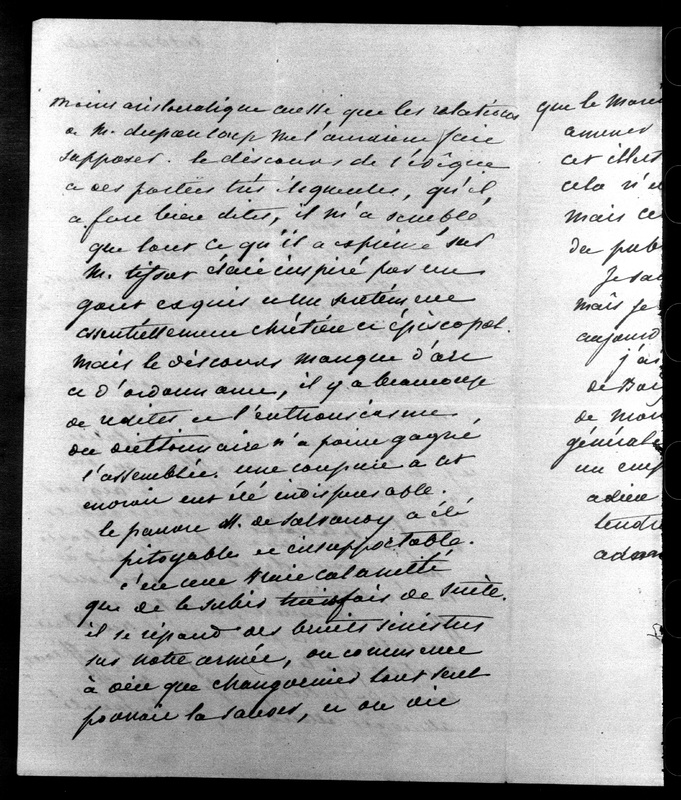 moins aristocratique aussi que les relations
de M. dupanloup me l'auraient faire
supposer. le discours de l'évêque
a des parties très éloquentes, qu'il
a fort bien dites, il m'a semblé,
que tout ce qu'il a exprimé sur
M. tissot était inspiré par un
gout exquis et un sentiment
essentiellement chrétien et épiscopal.
mais le discours manque d'art
et d'ordonnance, il y a beaucoup
de redites et l'enthousiasme
du dictionnaire n'a point gagné
l'assemblée. une coupure a cet
endroit eut été indispensable.
le pauvre M. de Salvandy a été
pitoyable et insupportable.
c'est une vraie calamité
que de le subir trois fois de suite.
il se répand des bruits sinistres
sur notre armée, on commence
à dire que changarnier tout seul
pourrait la sauver, et on dit
que le Maré
amener
cet illust
cela n'e
mais ce
du pub
Je sai
mais je
aujourd
j'ai
de
de mon
générale
un emp
adieu
tendre